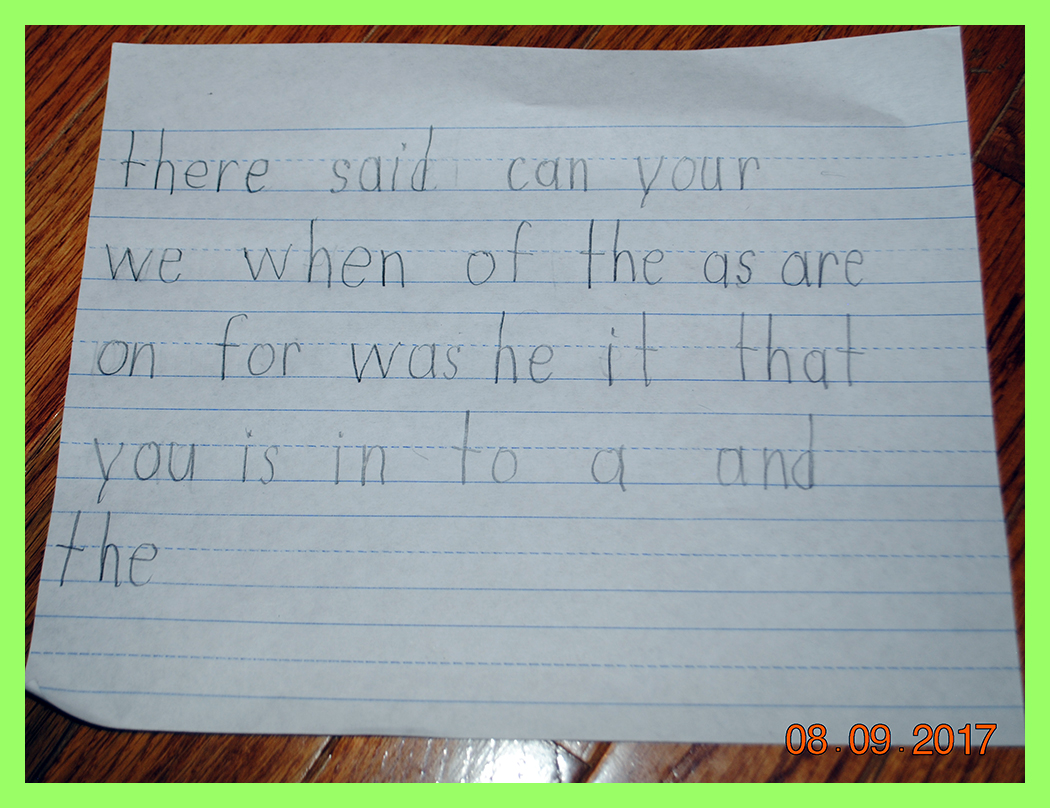 there said can your
we when of the as are
on for was he it that
you is in to a and
the
08.09.2017